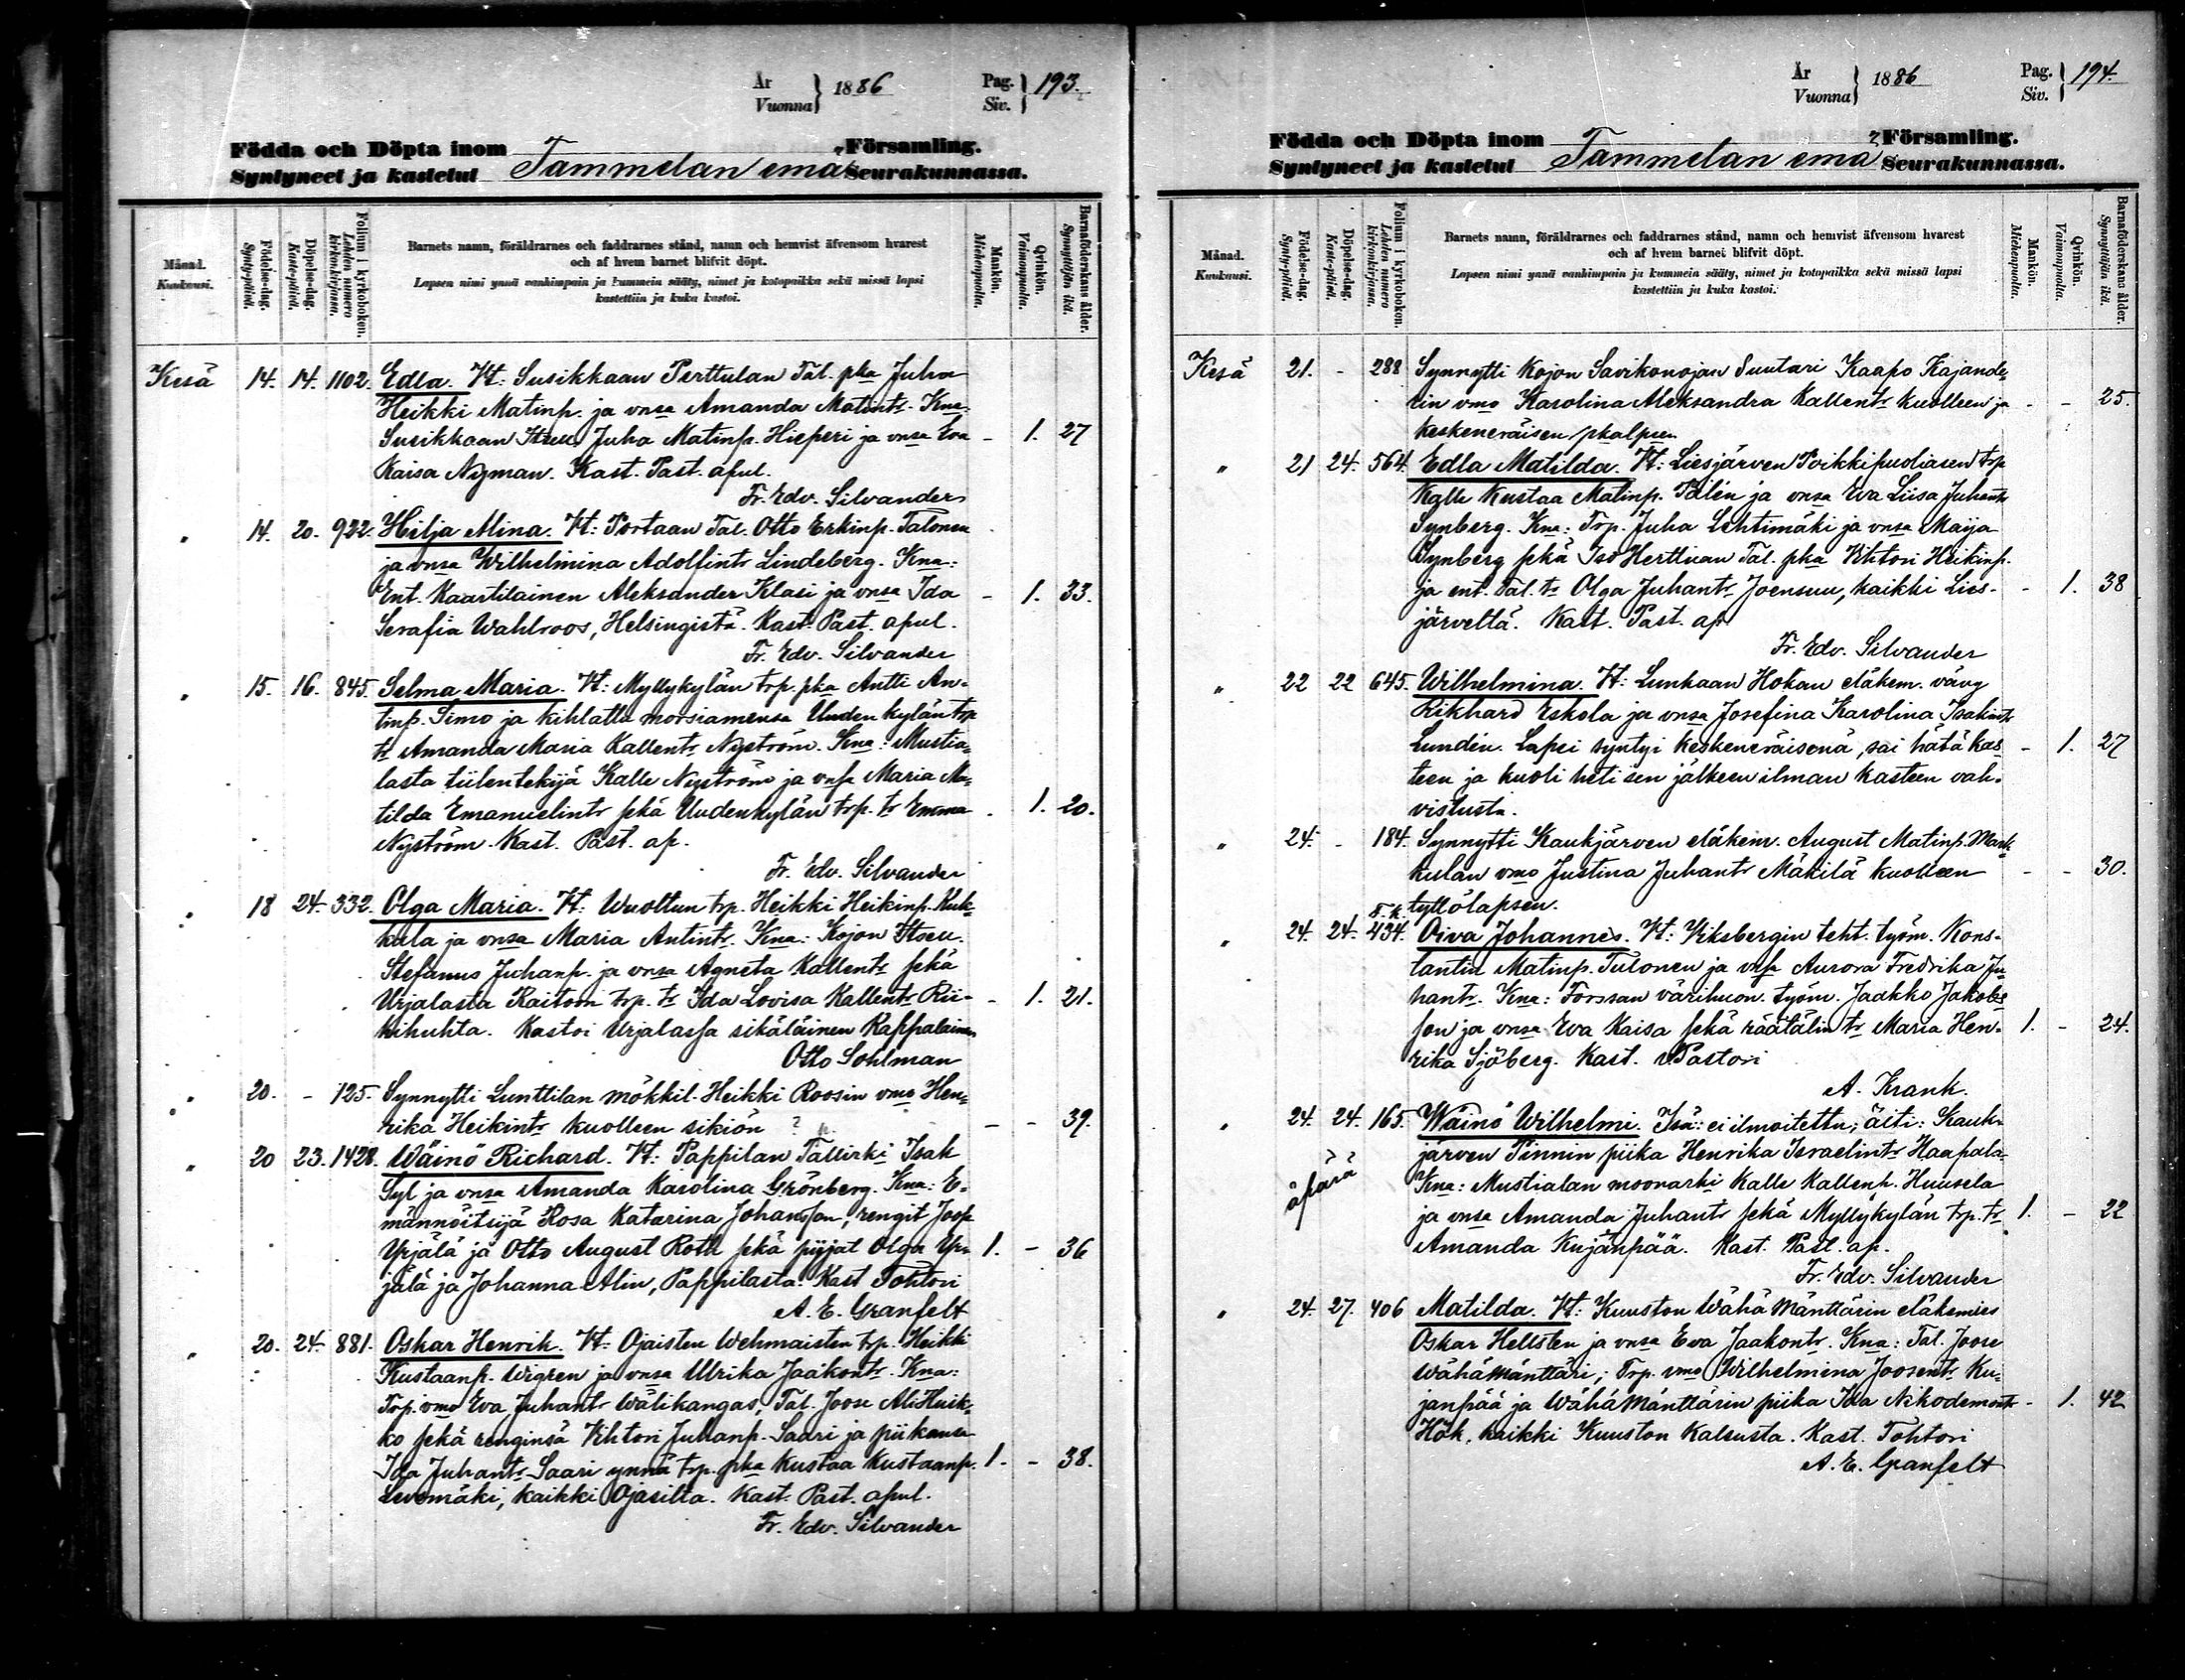 År
Vuonna } 1886
Pag.
Siv. } 193.
Födda och Döpta inom
Syntyneet ja kastetut
Tammelan emä
Församling.
Seurakunnassa.
Månad.
Kuukausi.
Födelse-dag.
Synty-päivä.
Döpelse-dag.
Kaste-päivä.
Folium i kyrkoboken.
Lehden numero kirkonkirjassa.
Barnets namn, föräldrarnes och faddrarnes stånd, namn och hemvist äfvensom hvarest
och af hvem barnet blifvit döpt.
Lapsen nimi ynnä vanhimpain ja kummein sääty, nimet ja kotopaikka sekä missä lapsi
kastettiin ja kuka kastoi.
Mankön.
Miehenpuolta.
Qvinkön.
Vaimonpuolta.
Barnaföderskans ålder.
Synnyttäjän ikä.
Kesä 14. 14. 1102. Edla. Vt: Susikkaan Perttulan Tal. pka Juha
Heikki Matinp. ja vnsa Amanda Matintr. Kna:
Susikkaan Itsell. Juha Matinp. Hieperi ja vnsa Eva - 1. 27
Kaisa Nyman. Kast. Past. apul.
Fr. Edv. Silvander
" 14. 20. 922. Hilja Alina. Vt: Portaan Tal. Otto Erkinp. Talonen
ja vnsa Wilhelmina Adolfintr Lindeberg. Kna:
Ent. Kaartilainen Aleksander Klasi ja vnsa Ida - 1. 33.
Serafia Wahlroos, Helsingistä. Kast. Past. apul.
Fr. Edv. Silvander
" 15. 16. 845. Selma Maria. Vt: Myllykylän trp. pka Antti An-
tinp. Simo ja kihlattu morsiamensa Uuden kylän trp
tr Amanda Maria Kallentr Nyström. Kna: Mustia-
lasta tiilentekijä Kalle Nyström ja vnsa Maria Ma-
tilda Emanuelintr sekä Uudenkylän trp. tr Emma . 1. 20.
Nyström. Kast. Past. ap.
Fr. Edv. Silvander
" 18 24. 332. Olga Maria. Vt: Wuoltun trp. Heikki Heikinp. Kuk-
kala ja vnsa Maria Antintr. Kna: Kojon Itsell.
Stefanus Juhanp. ja vnsa Agneta Kallentr sekä
Urjalasta Raitoon trp. tr Ida Lovisa Kallentr Rii- - 1. 21.
hihuhta. Kastoi Urjalassa sikäläinen Kappalainen
Otto Sohlman
" 20. - 125. Synnytti Lunttilan mökkil. Heikki Roosin vmo Hen-
rika Heikintr kuolleen sikiön ? - - 39.
" 20 23. 1428. Wäinö Richard. Vt: Pappilan Tallirki Isak
Syl ja vnsa Amanda Karolina Grönberg. Kna: E-
männöitsijä Rosa Katarina Johansson, rengit Joop
Yrjälä ja Otto August Roth sekä piijat Olga Yr- 1. - 36
jälä ja Johanna Alin, Pappilasta. Kast Tohtori
A. E. Granfelt
" 20. 24. 881. Oskar Henrik. Vt: Ojaisten Wehmaisten trp. Heikki
Kustaanp. Wigren ja vnsa Ulrika Jaakontr. Kna:
Trp. vmo Eva Juhantr Wälikangas, Tal. Joose Ali Huik-
ko sekä renginsä Vihtori Juhanp. Saari ja piikansa
Ida Juhantr Saari ynnä trp. pka Kustaa Kustaanp. 1. - 38.
Levomäki, kaikki Ojasilta. Kast. Past. apul.
Fr. Edv. Silvander
År
Vuonna } 1886
Pag.
Siv. } 194.
Födda och Döpta inom
Syntyneet ja kastetut
Tammelan emä
Församling.
Seurakunnassa.
Månad.
Kuukausi.
Födelse-dag.
Synty-päivä.
Döpelse-dag.
Kaste-päivä.
Folium i kyrkoboken.
Lehden numero kirkonkirjassa.
Barnets namn, föräldrarnes och faddrarnes stånd, namn och hemvist äfvensom hvarest
och af hvem barnet blifvit döpt.
Lapsen nimi ynnä vanhimpain ja kummein sääty, nimet ja kotopaikka sekä missä lapsi
kastettiin ja kuka kastoi.
Mankön.
Miehenpuolta.
Qvinkön.
Vaimonpuolta.
Barnaföderskans ålder.
Synnyttäjän ikä.
Kesä 21. - 288 Synnytti Kojon Savikonojan Suutari Kaapo Kajande-
rin vmo Karolina Aleksandra Kallentr kuolleen ja - - 25.
keskeneräisen pkalpsen
" 21 24. 564. Edla Matilda. Vt: Liesjärven Poikkipuoliasen trp
Kalle Kustaa Matinp. Palén ja vnsa Eva Liisa Juhantr
Synberg. Kna: Trp. Juha Lehtimäki ja vnsa Maija
Synberg sekä Iso Herttuan Tal. pka Vihtori Heikinp.
ja ent. Tal. tr Olga Juhantr Joensuu, kaikki Lies- - 1. 38
järveltä. Kast. Past. ap
Fr. Edv. Silvander
" 22 22 645. Wilhelmina. Vt: Lunkaan Hokan eläkem. vävy
Rikhard Eskola ja vnsa Josefina Karolina Isakintr
Lundén. Lapsi syntyi keskeneräisenä, sai hätä kas- - 1. 27
teen ja kuoli heti sen jälkeen ilman kasteen vah-
vistusta.
" 24. - 184. Synnytti Kaukjärven eläkem. August Matinp. Mank-
kulan vmo Justina Juhantr Mäkilä kuolleen - - 30.
tyttölapsen.
" 24. 24. T.k. 434. Oiva Johannes. Vt: Viksbergin teht. työm. Kons-
tantin Matinp. Tulonen ja vnsa Aurora Fredrika Ju-
hantr. Kna: Forssan värihuon. työm. Jaakko Jakobs-
son ja vnsa Eva Kaisa sekä räätälin tr Maria Hen- 1. - 24.
rika Sjöberg. Kast. v.Pastori
A. Krank.
" 24. 24. 165. Wäinö Wilhelmi. Isä: ei ilmoitettu; äiti: Kauk-
järven Pinnin piika Henrika Israelintr Haapala-
äpärä
Kna: Mustialan moonarki Kalle Kallenp. Huusela
ja vnsa Amanda Juhantr sekä Myllykylän trp. tr 1. - 22
Amanda Kujanpää. Kast. Past. ap.
Fr. Edv. Silvander
" 24. 27. 406 Matilda. Vt: Kuuston Wähä Mänttärin eläkemies
Oskar Hellsten ja vnsa Eva Jaakontr. Kna: Tal. Joose
Wähä Mänttäri; Trp. vmo Wilhelmina Joosentr. Ku-
janpää ja Wähä Mänttärin piika Ida Nikodemuntr - 1. 42
Höök, kaikki Kuuston Kalsusta. Kast. Tohtori
A. E. Granfelt